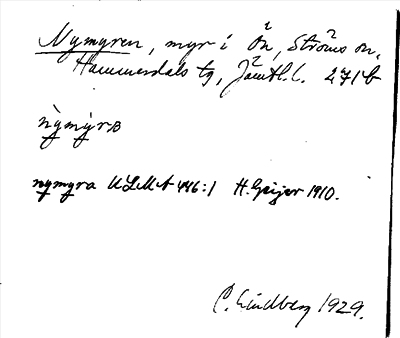 Nymyren, myr i Ön, Ströms sn,
Hammerdals tg, Jämtl. l. 271b
ǹymỳrɐ
nymyra ULMA 446:1 H. Geijer 1910.
C. Lindberg 1929.